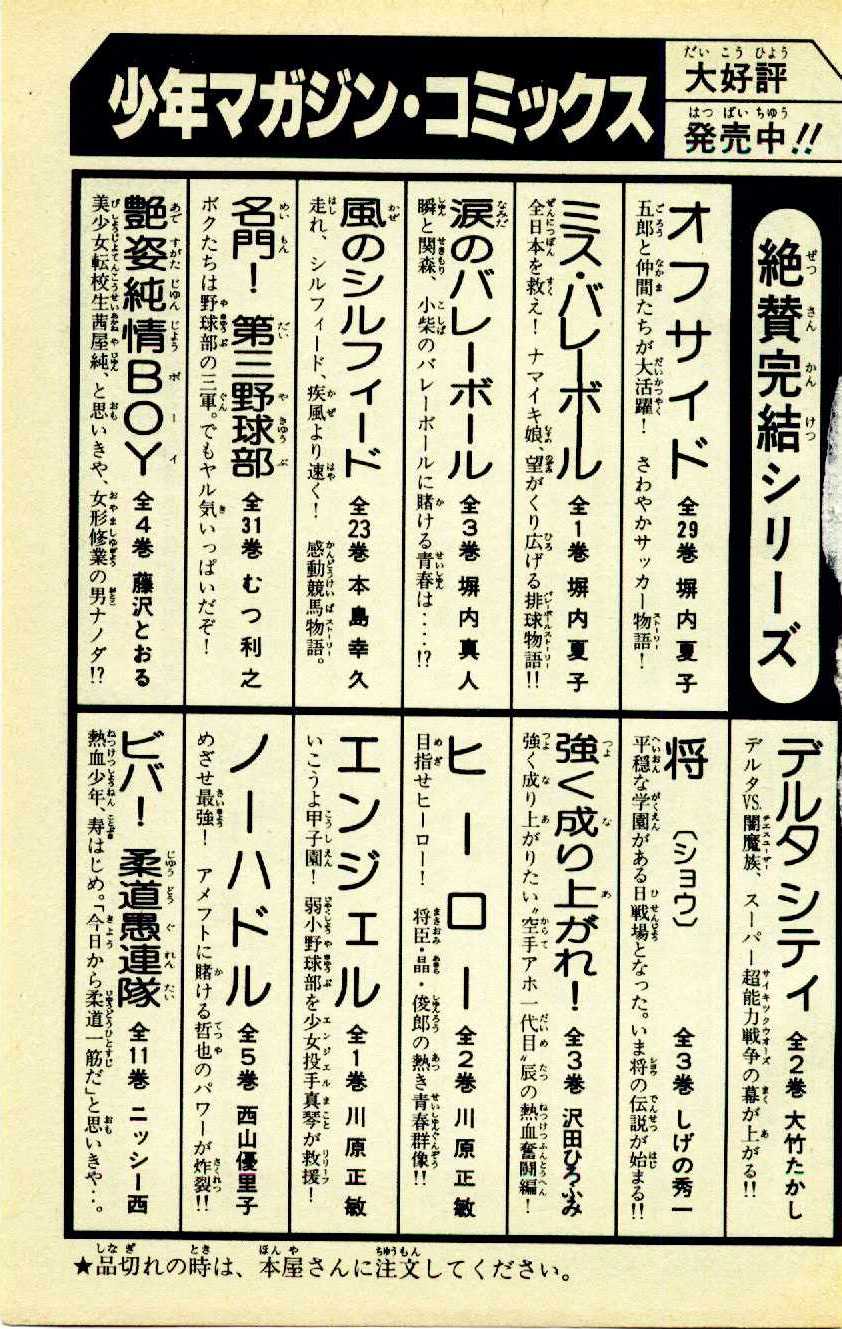 少年マガジン・コミックス
大好評
発売中!!
絶賛完結シリーズ
オフサイド 全29巻 塀内夏子
五郎と仲間たちが大活躍! さわやかサッカー物語!
ミス・バレーボール 全1巻 塀内夏子
全日本を救え! ナマイキ娘、望がくり広げる排球物語!!
涙のバレーボール 全3巻 塀内真人
瞬と関森、小柴のバレーボールに賭ける青春は‥‥!?
風のシルフィード 全23巻 本島幸久
走れ、シルフィード、疾風より速く! 感動競馬物語。
名門! 第三野球部 全31巻 むつ利之
ボクたちは野球部の三軍。でもヤル気いっぱいだぞ!
艶姿純情BOY 全4巻 藤沢とおる
美少女転校生茜屋純、と思いきや、女形修業の男ナノダ!?
デルタシティ 全2巻 大竹たかし
デルタVS.闇魔族、スーパー超能力戦争の幕が上がる!!
将〔ショウ〕 全3巻 しげの秀一
平穏な学園がある日戦場となった。いま将の伝説が始まる!!
強く成り上がれ! 全3巻 沢田ひろふみ
強く成り上がりたい“空手アホ一代目”辰の熱血奮闘編!
ヒーロー 全2巻 川原正敏
目指せヒーロー! 将臣・晶・俊郎の熱き青春群像!!
エンジェル 全1巻 川原正敏
いこうよ甲子園! 弱小野球部を少女投手真琴が救援!
ノーハドル 全5巻 西山優里子
めざせ最強! アメフトに賭ける哲也のパワーが炸裂!!
ビバ! 柔道愚連隊 全11巻 ニッシー西
熱血少年、寿はじめ。「今日から柔道一筋だ」と思いきや‥。
★品切れの時は、本屋さんに注文してください。